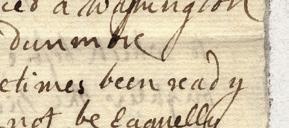 ced a Washington
Dunmore
etimes been ready
not be Equelly